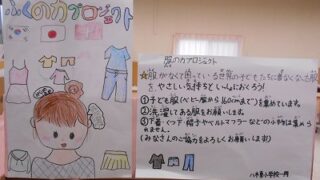 ふくの力プロジェクト
服の力プロジェクト
☆服がなくて困っている世界の子どもたちに着なくなった服
を、やさしい気持ちで いっしょにおくろう!
①子ども服(ベビー服から160cmまで)を集めています。
②洗濯してある服をお願いします。
③下着・くつ下・帽子やベルト・マフラーなどの小物は集めら
れません。
(みなさんのご協力をよろしくお願いします)
小学校一同